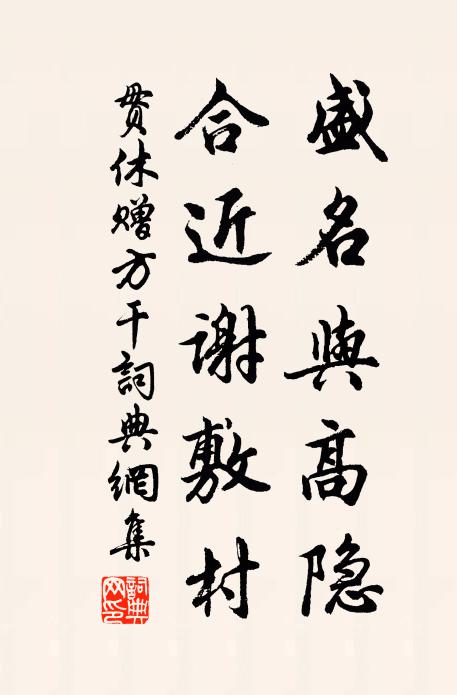 盛名與高隐
合近谢敷村
贯休赠方干詞典網集
詞典网印